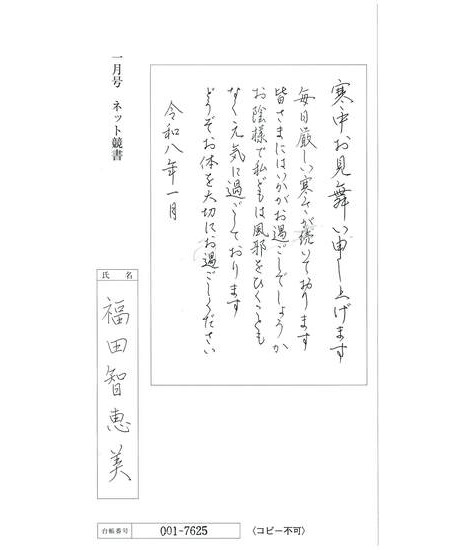 寒中お見舞い申し上げます
毎日厳しい寒さが続いております
皆さまにはいかがお過ごしでしょうか
お陰様で私どもは風邪をひくことも
なく元気に過ごしております
どうぞお体を大切にお過ごしください
令和八年一月
一月号 ネット競書
氏名
福田智恵美
台帳番号 001-7625 〈コピー不可〉